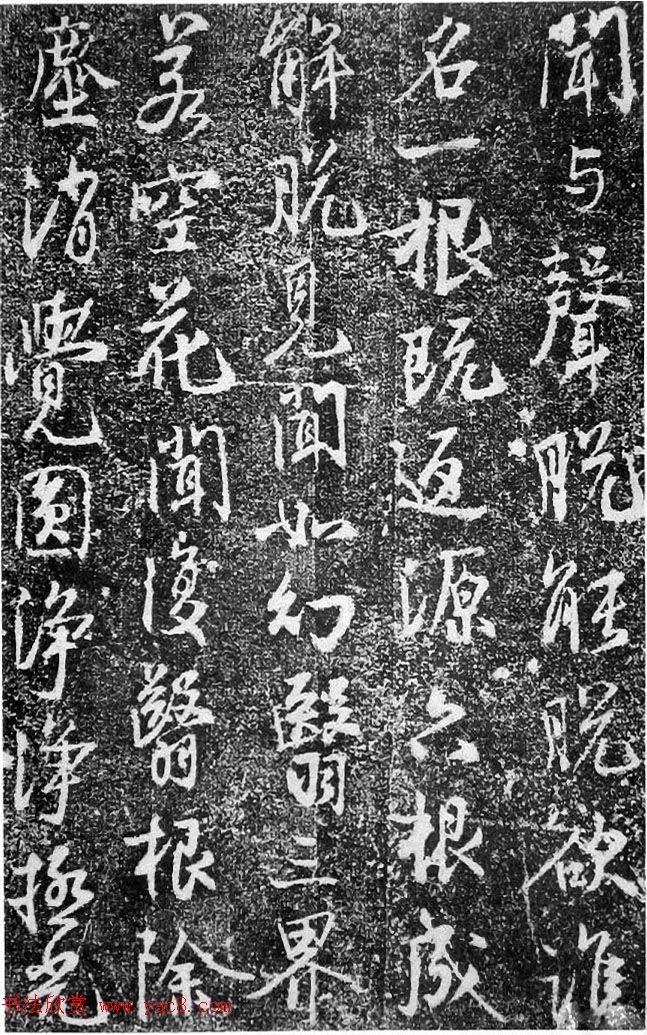 聞与聲脫能脫欲誰
名一根既返源六根成
解脫見聞如幻翳三界
若空花聞復翳根除
塵消覺圓淨淨極光
书法欣赏 www.yac8.com